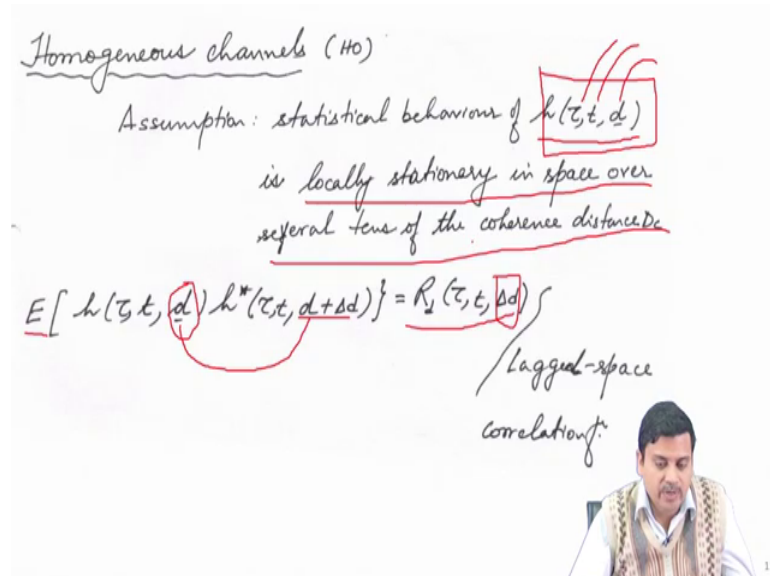 Homogeneous channels (HO)
Assumption: statistical behaviour of h(τ,t,d)
is locally stationary in space over
several tens of the coherence distance Dc
E[ h(τ,t,d) h*(τ,t,d+Δd)} = R_d(τ,t,Δd)
Lagged-space
correlation fⁿ.
1